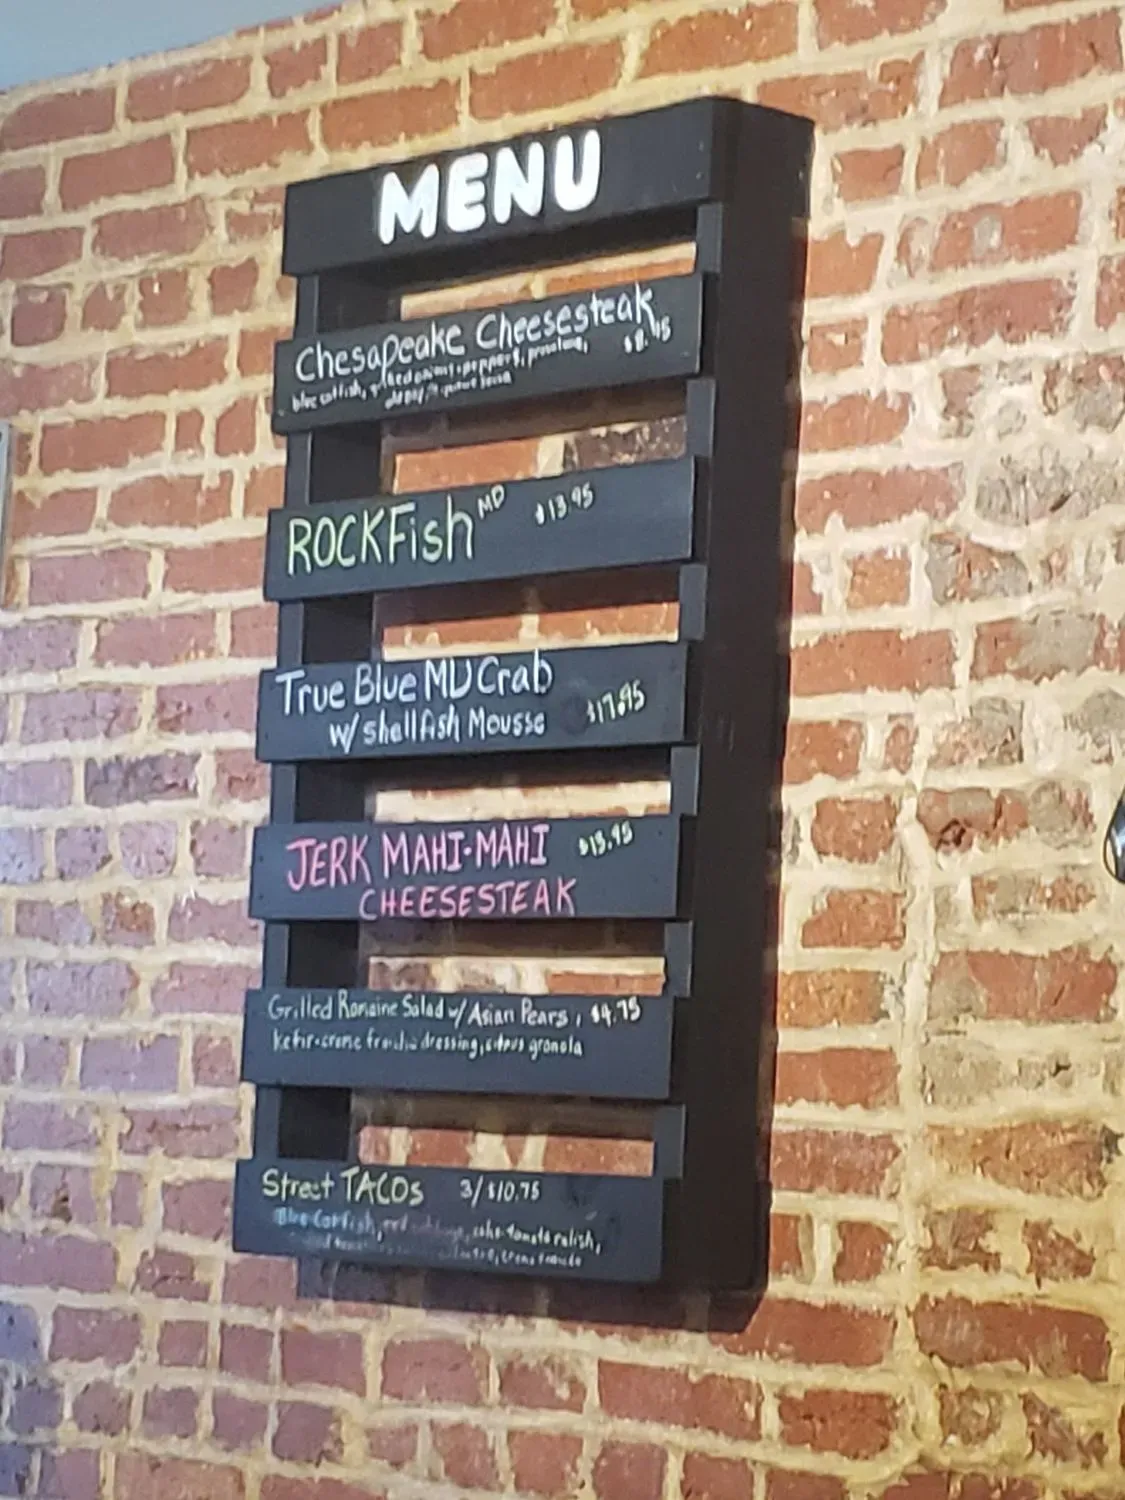 MENU
Chesapeake Cheesesteak
blue catfish, grilled onions + peppers, provolone,
ROCKFish MD $13.95
True Blue MD Crab
w/ shellfish Mousse $17.95
JERK MAHI-MAHI $13.95
CHEESESTEAK
Grilled Romaine Salad w/ Asian Pears, $9.75
kefir-creme fraiche dressing, citrus granola
Street TACOs 3/$10.75
Blue Catfish, red cabbage, cake-tomato relish,